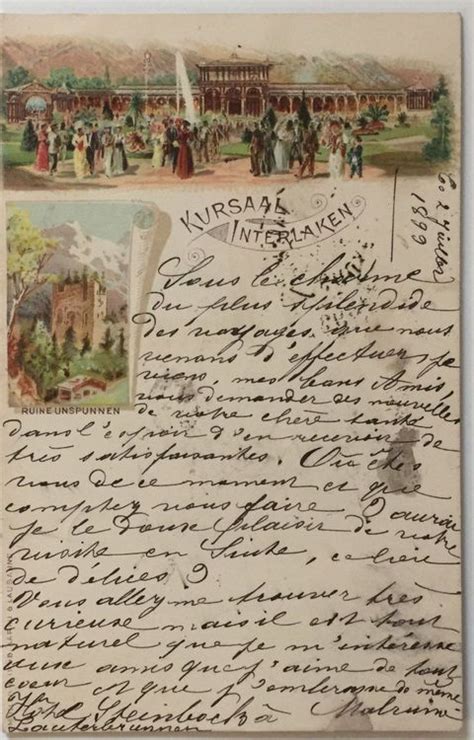 KURSAAL
INTERLAKEN
Ce 2 Juillet
1899
RUINE UNSPUNNEN
Sous le charme
du plus splendide
des voyages, que nous
venons d'effectuer, je
viens, mes bons Amis,
vous demander des nouvelles
de votre chère santé
dans l'espoir d'en recevoir de
très satisfaisantes. Où êtes
vous de ce moment et que
comptez vous faire ? aurai
je le doux plaisir de votre
visite en Suite, ce lieu
de délices ?
Vous allez me trouver très
curieuse mais il est tout
naturel que je m'intéresse
aux amis que j'aime de tout
coeur et que j'embrasse de même
Hôtel Steinbock à
Lauterbrunnen